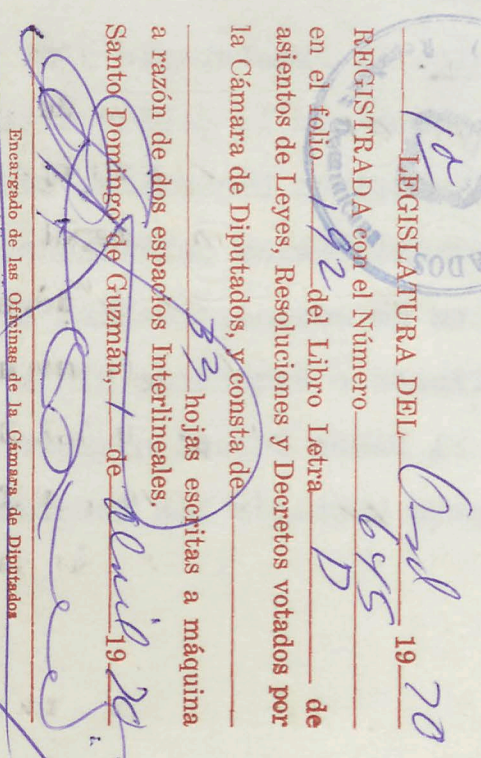 1ª LEGISLATURA DEL Ord 1970
REGISTRADA con el Número 645
en el folio 192 del Libro Letra D de
asientos de Leyes, Resoluciones y Decretos votados por
la Cámara de Diputados, y consta de
33 hojas escritas a máquina
a razón de dos espacios Interlineales.
Santo Domingo de Guzmán, 1 de Abril 1970
Encargado de las Oficinas de la Camara de Diputados